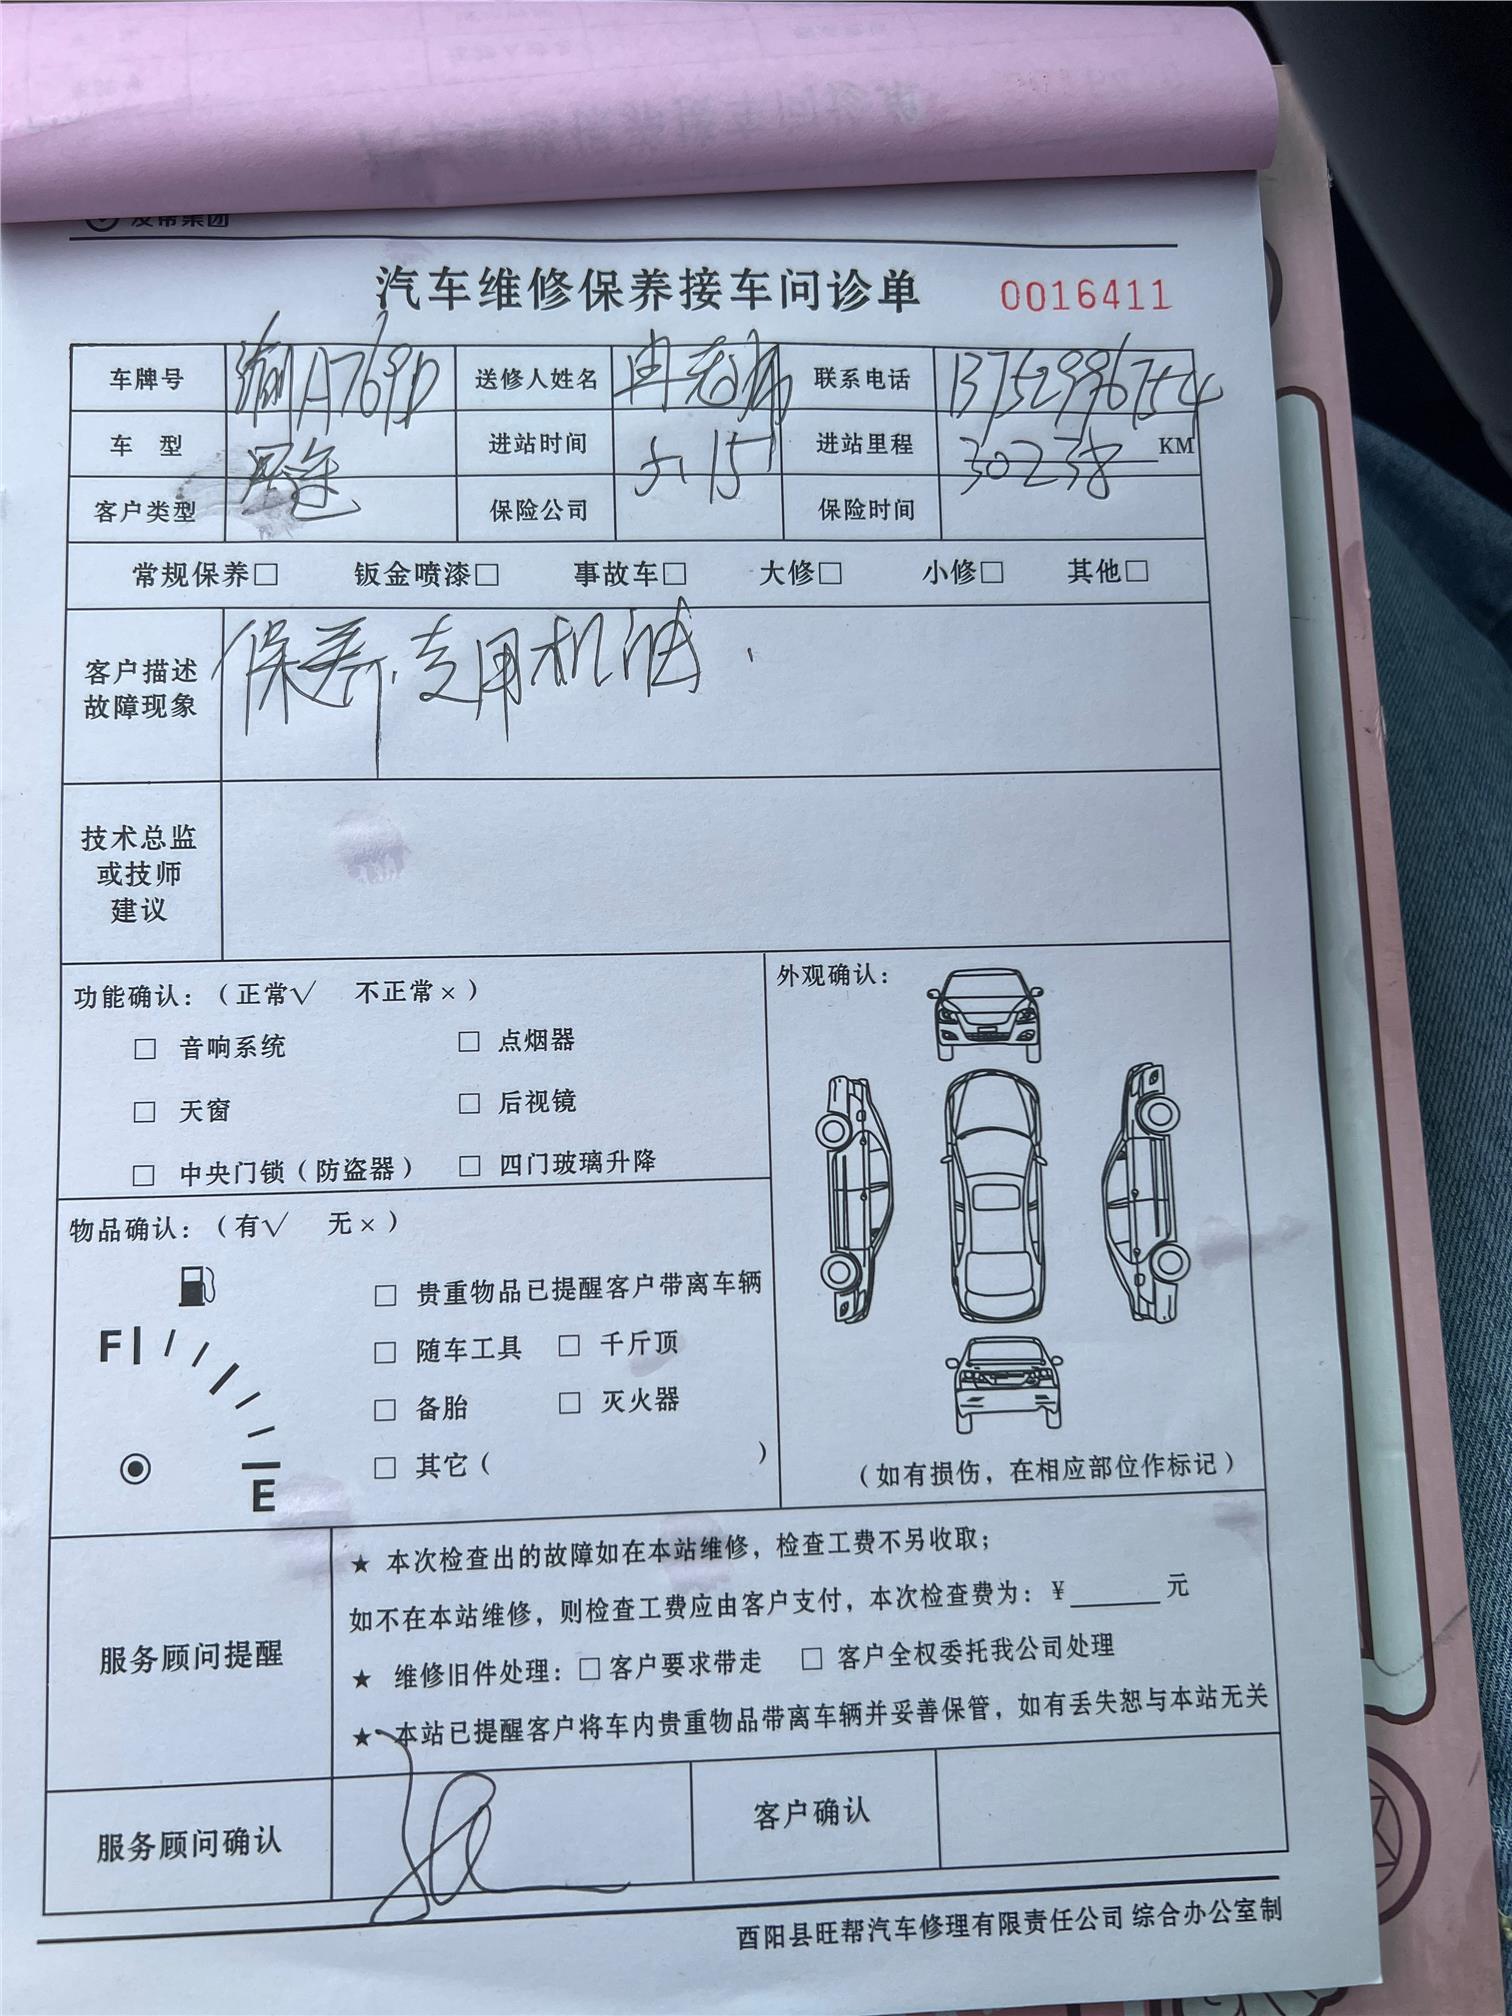 汽车维修保养接车问诊单 0016411
车牌号 渝A769D 送修人姓名 冉老师 联系电话 13752996754
车 型 进站时间 5.15 进站里程 30238 KM
客户类型 保险公司 保险时间
常规保养□ 钣金喷漆□ 事故车□ 大修□ 小修□ 其他□
客户描述
故障现象
保养.专用机油.
技术总监
或技师
建议
功能确认：（正常√ 不正常×）
□ 音响系统 □ 点烟器
□ 天窗 □ 后视镜
□ 中央门锁（防盗器） □ 四门玻璃升降
外观确认：
（如有损伤，在相应部位作标记）
物品确认：（有√ 无×）
F
E
□ 贵重物品已提醒客户带离车辆
□ 随车工具 □ 千斤顶
□ 备胎 □ 灭火器
□ 其它（ ）
服务顾问提醒
★ 本次检查出的故障如在本站维修，检查工费不另收取；
如不在本站维修，则检查工费应由客户支付，本次检查费为：¥______元
★ 维修旧件处理：□客户要求带走 □ 客户全权委托我公司处理
★ 本站已提醒客户将车内贵重物品带离车辆并妥善保管，如有丢失恕与本站无关
服务顾问确认 客户确认
酉阳县旺帮汽车修理有限责任公司 综合办公室制